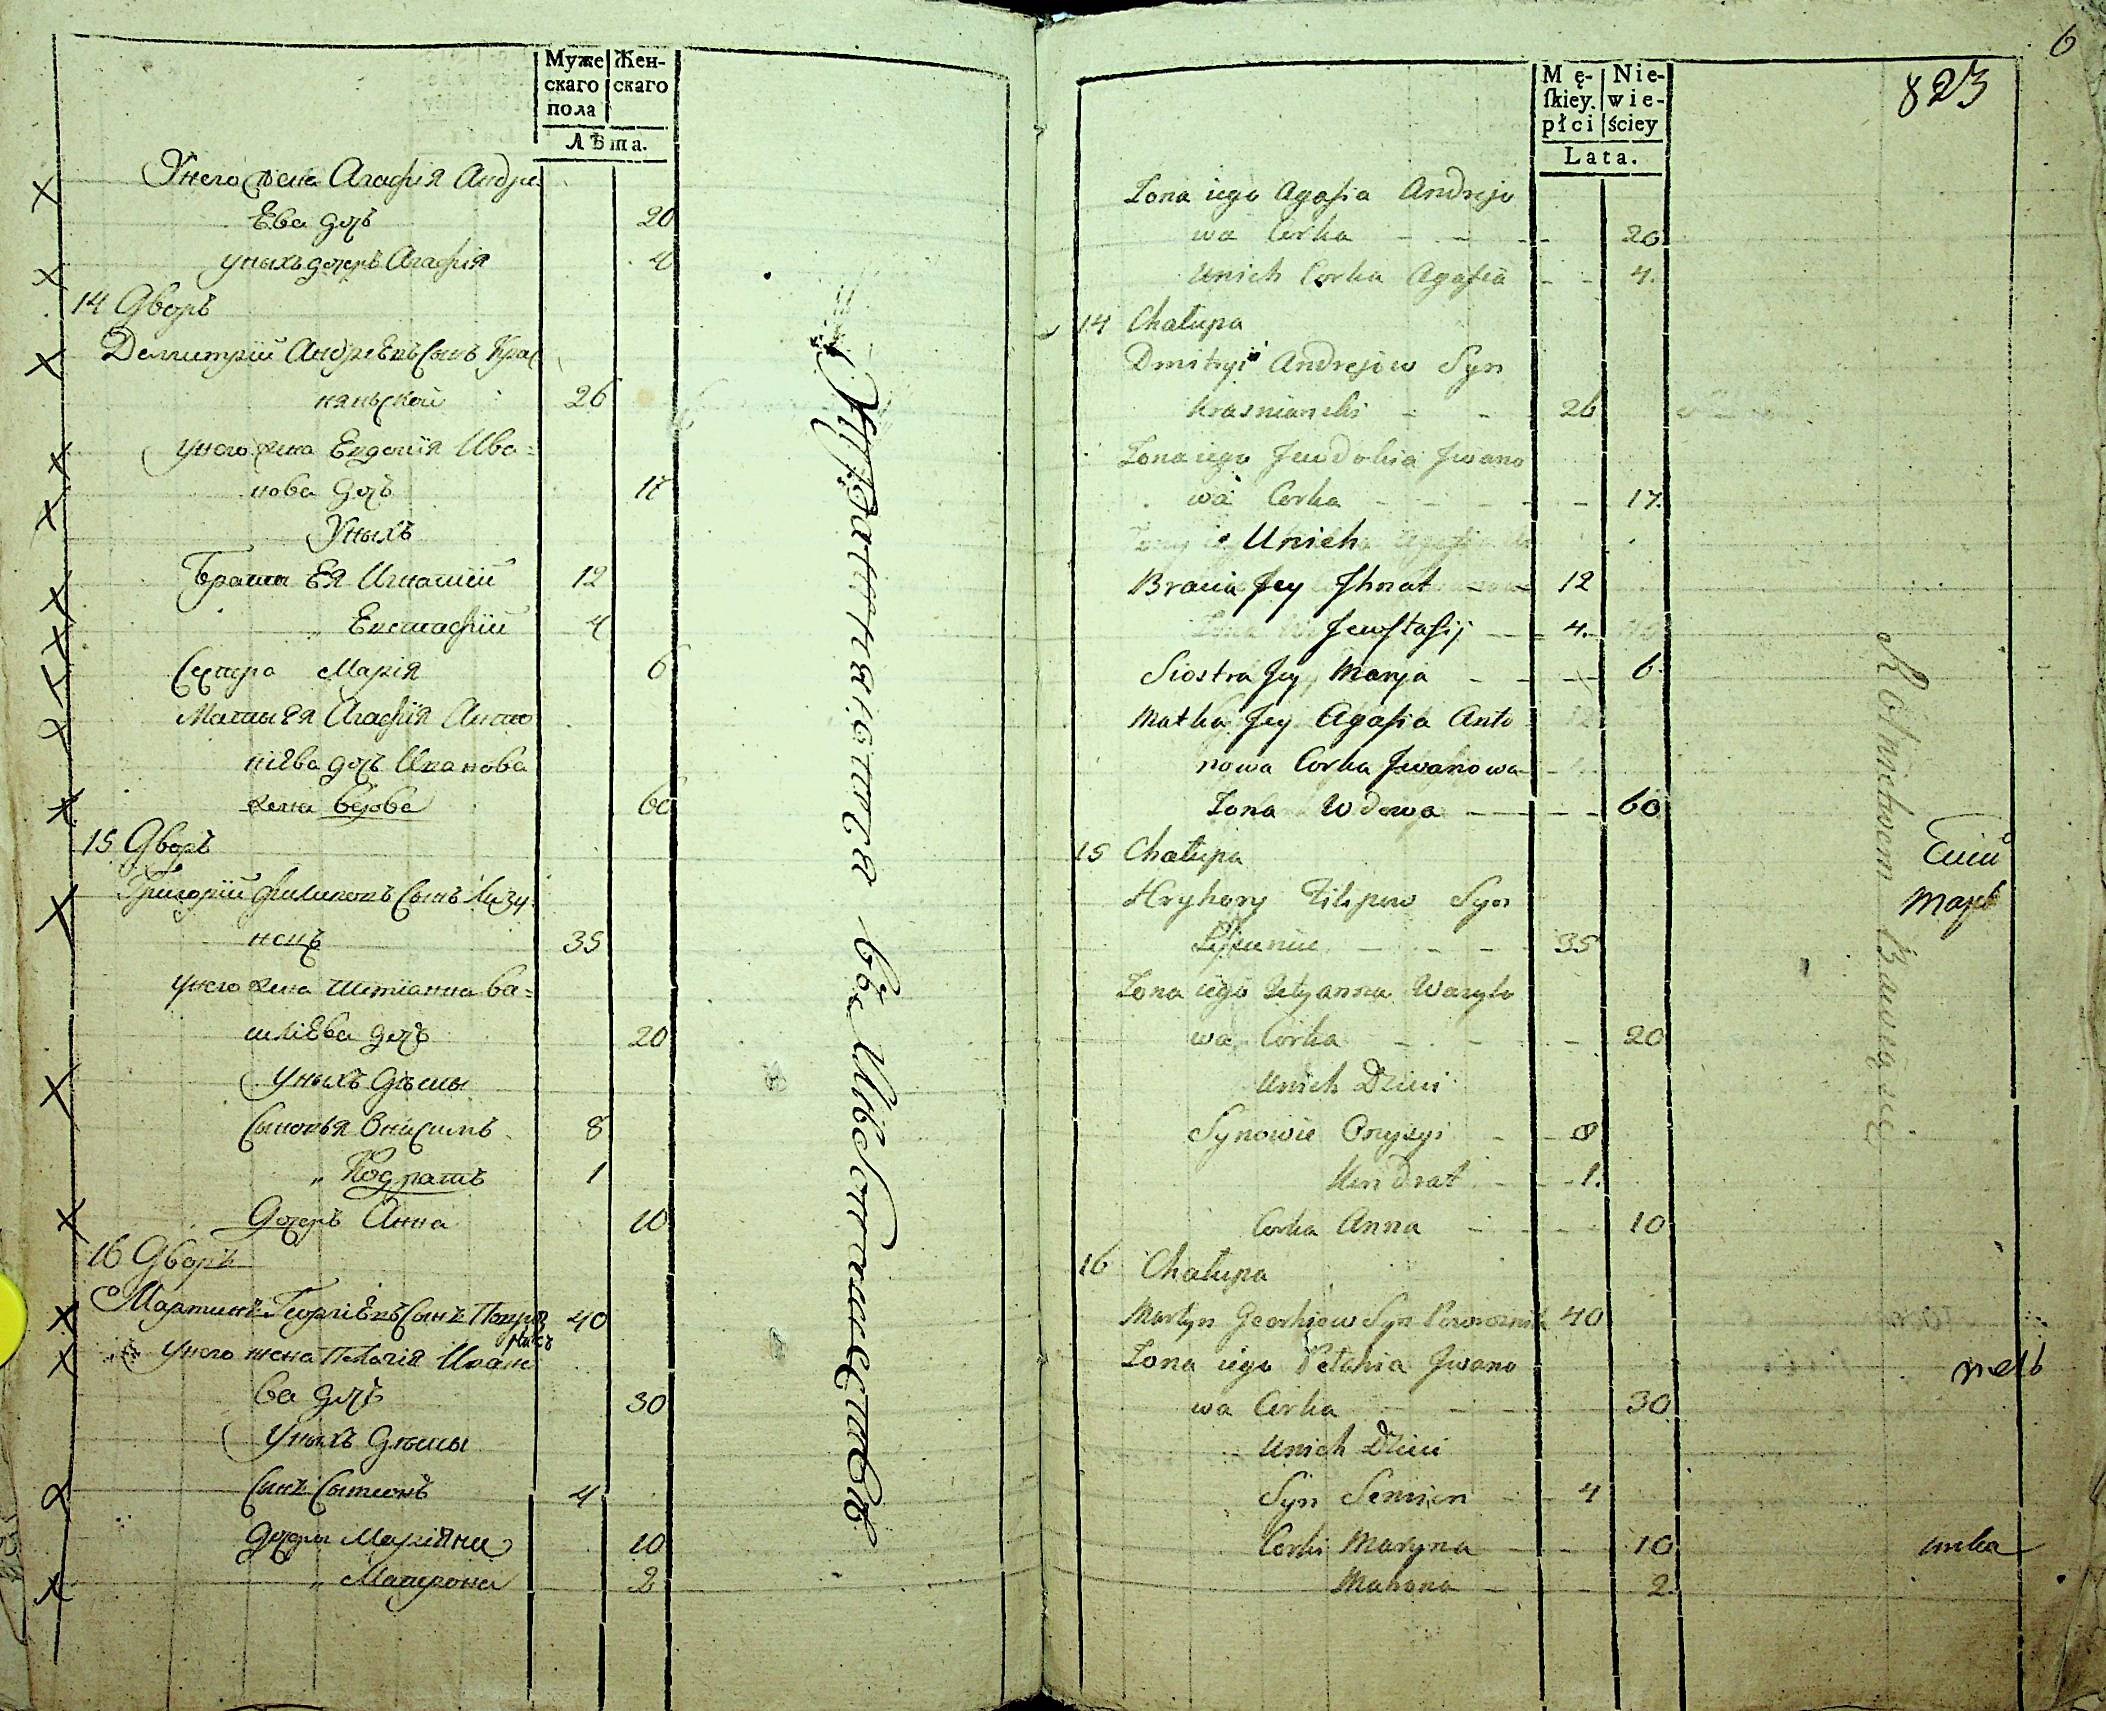 Муже
скаго
пола
Жен-
скаго
Лѣта.
Унего жена Агафія Андре
Ева дочъ 20
Уныхъ дочеръ Агафія 4
14 Дворъ
Демитрій Андреевъ Сынъ Крас
няньской 26
Унего жена Евдокія Ива=
нова дочъ 17
Уныхъ
Браты Ея Игнатій 12
„ Евстафій 4
Сестра Марія 6
Маты Ея Агафія Анто
ніева дочъ Иванова
жена вдова 60
15 Дворъ
Григорій Филиповъ Сынъ
35
Унего жена Ва=
силіева дочъ 20
Уныхъ дѣты
Сыновья Онисимъ 8
„ Кодратъ 1
Дочеръ Анна 10
16 Дворъ
Мартинъ Георгіевъ Сынъ 40
Унего жена Пелагія Ивано
ва дочъ 30
Уныхъ дѣты
Синъ Сымеонъ 4
Дочеры Маріяна 10
„ Матрона 2
Упражняется въ Хлебопашествѣ
6
823
Mę-
ſkiey.
płci
Nie-
wie-
ściey
Lata.
Zona iego Agafia Andrejo
wa Corka - - - 20.
Unich Corka Agafia - - 4.
14 Chałupa
Dmitryi Andrejow Syn
Krasnianski - - 26
Zona iego Jewdokia Jwano
wa Corka - - - - 17.
Unich
Bracia Jey Jhnat - - 12
Jewstafij - - 4.
Siostra Jey Marya - - - 6.
Matka Jey Agafia Anto
nowa Corka Jwanowa
Zona Wdowa - - - - 60
15 Chałupa
Hryhory Filipow Syn
- - - 35
Zona iego Tetyanna Wasylo
wa Corka - - - 20
Unich Dzieci
Synowie Onysyi - - 8
Kindrat - - 1.
Corka Anna - - - 10
16 Chałupa
Martyn Georhiew Syn Powroznik 40
Zona iego Pelahia Jwano
wa Corka - - - 30
Unich Dzieci
Syn Semion - - 4
Corki Maryna - - 10
Matrona - - - 2.
Rolnictwem Bawią się